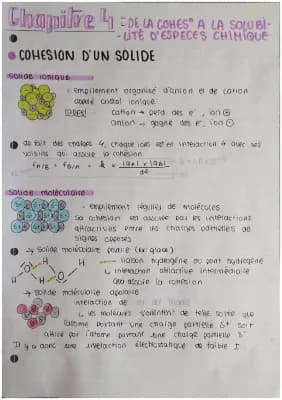 Chapitre 4 : "DE LA COHES° A LA SOLUBI-
LITÉ D'ESPECES CHIMIQUE
COHESION D'UN SOLIDE
solide ionique
- empilement organisé d'anion et de cation
appelé cristal ionique
cation → perd des e-, ion +
anion → gagne des e-, ion -
du fait des charges, chaque ions est en interaction avec ses
voisins qui assure la cohésion.
solide moléculaire
- empilement régulier de molécules
sa cohésion est assurée par les interactions
attractives entre les charges partielles de
signes opposés
→ solide moléculaire polaire (ex glace)
H O H
liaison hydrogène ou pont hydrogène
↳ interaction attractive intermédiaire
qui assure la cohésion
H O H
→ solide moléculaire apolaire
interaction de
↳ les molécules s'orientent de telle sorte que
l'atome portant une charge partielle δ+ soit
attiré par l'atome portant une charge partielle δ-
Il y a avec une interaction électrostatique de faible I